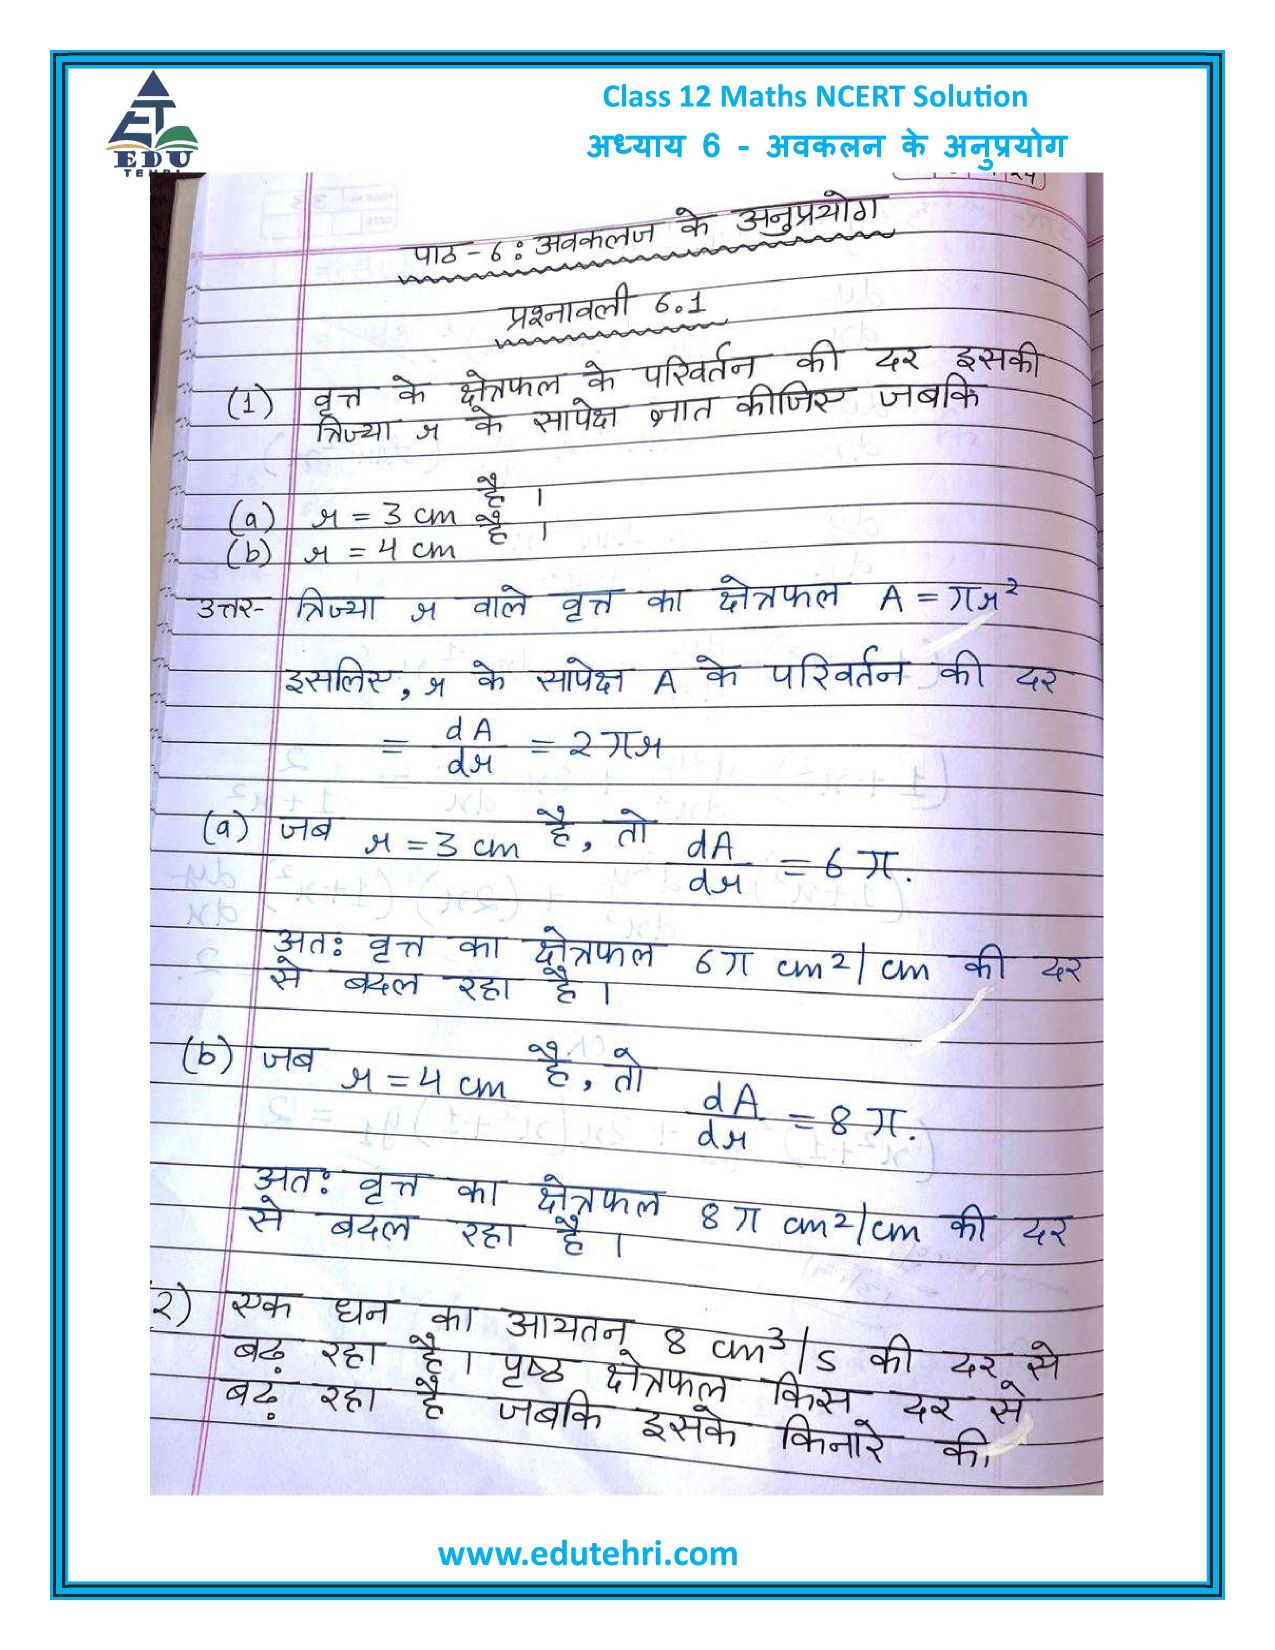 Class 12 Maths NCERT Solution
अध्याय 6 - अवकलन के अनुप्रयोग
ET
EDU
TEHRI
पाठ - 6 : अवकलज के अनुप्रयोग
प्रश्नावली 6.1
(1) वृत्त के क्षेत्रफल के परिवर्तन की दर इसकी
त्रिज्या r के सापेक्ष ज्ञात कीजिए जबकि
(a) r = 3 cm है ।
(b) r = 4 cm है ।
उत्तर- त्रिज्या r वाले वृत्त का क्षेत्रफल A = πr²
इसलिए, r के सापेक्ष A के परिवर्तन की दर
= dA/dr = 2πr
(a) जब r = 3 cm है, तो dA/dr = 6π.
अतः वृत्त का क्षेत्रफल 6π cm²/cm की दर
से बदल रहा है ।
(b) जब r = 4 cm है, तो dA/dr = 8π.
अतः वृत्त का क्षेत्रफल 8π cm²/cm की दर
से बदल रहा है ।
2) एक घन का आयतन 8 cm³/s की दर से
बढ़ रहा है । पृष्ठ क्षेत्रफल किस दर से
बढ़ रहा है जबकि इसके किनारे की
www.edutehri.com